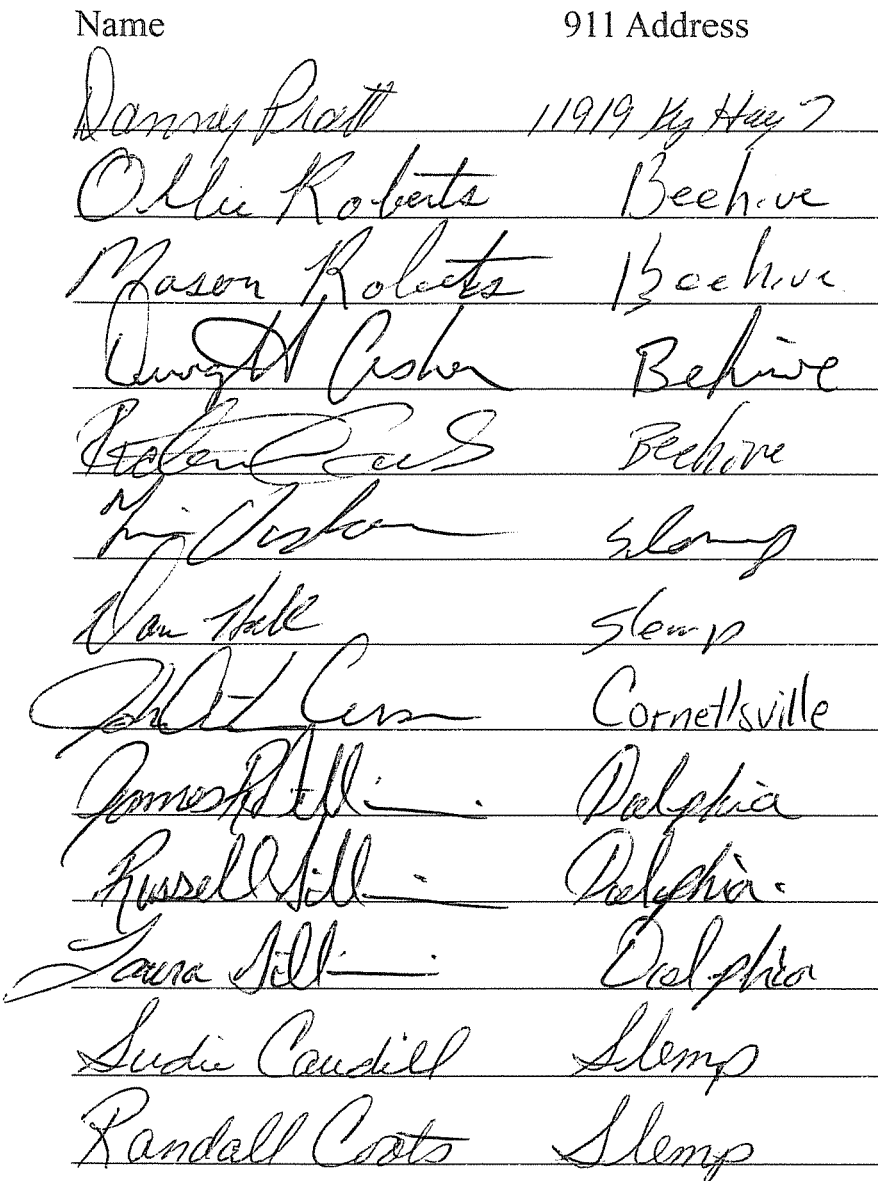 Name 911 Address
Danny Pratt 11919 Ky Hwy 7
Ollie Roberts Beehive
Mason Roberts Beehive
Dwight Asher Behive
Beehive
Slemp
Dan Hall Slemp
Cornettsville
James Dalphia
Russell Dalphia.
Laura Dalphia
Sudie Caudill Slemp
Randall Coots Slemp